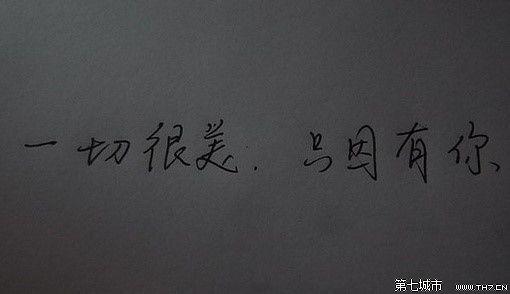 一切很美. 只因有你
第七城市 WWW.TH7.CN